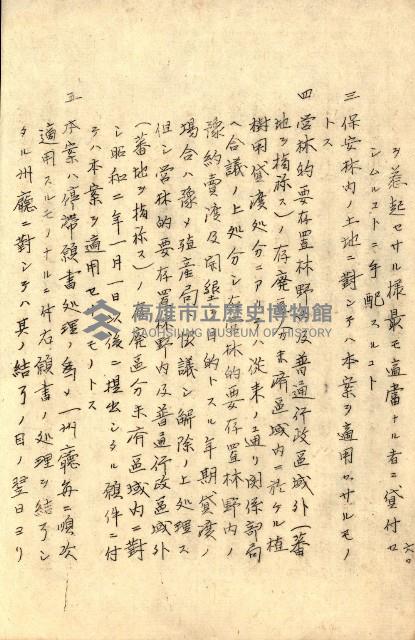 ヲ惹起セサル様最モ適當ナル者ニ貸付セ
シムルコトニ手配スルコト
三 保安林内ノ土地ニ對シテハ本案ヲ適用セサルモノ
トス
四 営林的要存置林野及普通行政區域外(蕃
地ヲ指称ス)ノ存廢區分未済區域内ニ於ケル植
樹用貸渡処分ニアリテハ従来ノ通リ関係部局
ヘ合議ノ上処分シ在営林的要存置林野内ノ
豫約賣渡及開墾目的トスル年期貸渡ノ
場合ハ豫メ殖産局ト協議シ解除ノ上処理ス
但シ営林的要存置林野内及普通行政區域外
(蕃地ヲ指称ス)ノ存廢區分未済區域内ニ對
シ昭和二年一月一日以後ニ提出シタル願件ニ付
テハ本案ヲ適用セサルモノトス
五 本案ハ停滞願書処理ノ為メ一州廳毎ニ順次
適用スルモノナルニ付右願書ノ処理ヲ結了シ
タル州廳ニ對シテハ其ノ結了ノ日ノ翌日ヨリ
高雄市立歷史博物館
KAOHSIUNG MUSEUM OF HISTORY